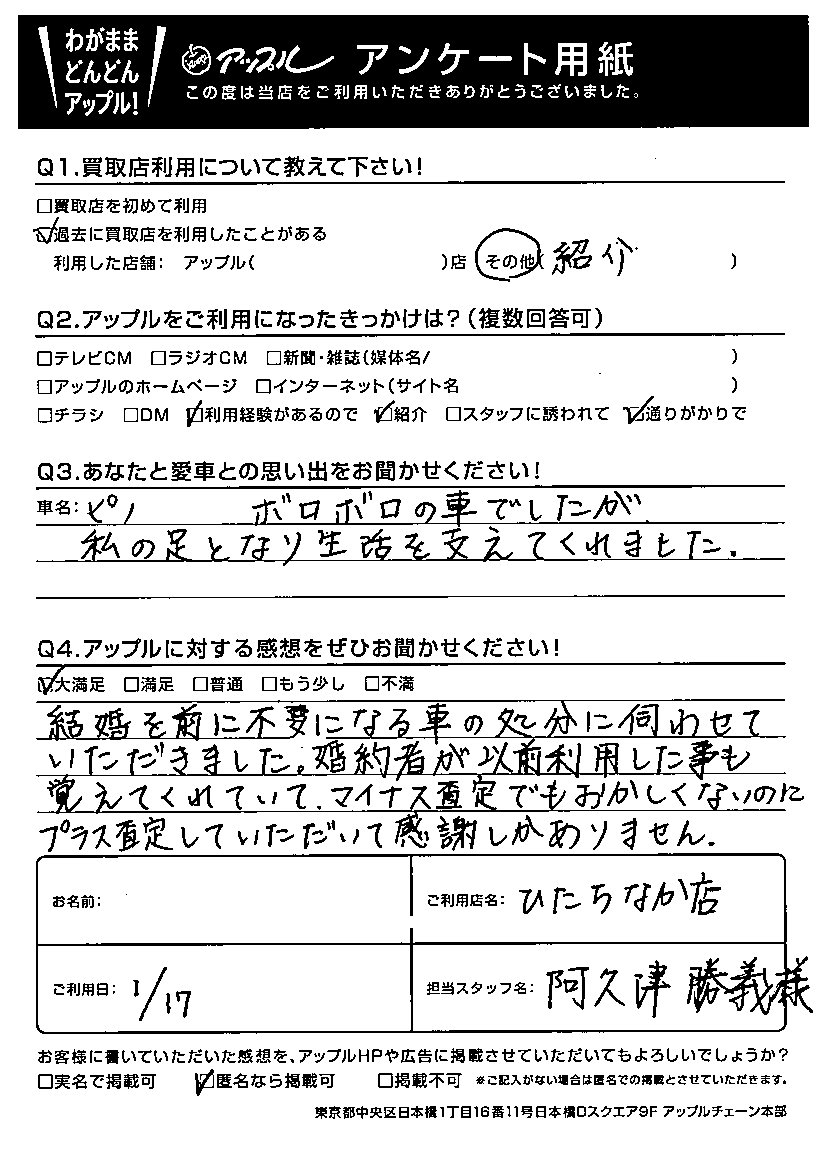 わがまま
どんどん
アップル!
アップル アンケート用紙
この度は当店をご利用いただきありがとうございました。
Q1.買取店利用について教えて下さい!
□買取店を初めて利用
☑過去に買取店を利用したことがある
利用した店舗: アップル( )店 その他(紹介 )
Q2.アップルをご利用になったきっかけは?(複数回答可)
□テレビCM □ラジオCM □新聞・雑誌(媒体名/ )
□アップルのホームページ □インターネット(サイト名 )
□チラシ □DM ☑利用経験があるので ☑紹介 □スタッフに誘われて ☑通りがかりで
Q3.あなたと愛車との思い出をお聞かせください!
車名: ピノ ボロボロの車でしたが、
私の足となり生活を支えてくれました.
Q4.アップルに対する感想をぜひお聞かせください!
☑大満足 □満足 □普通 □もう少し □不満
結婚を前に不要になる車の処分に伺わせて
いただきました。婚約者が以前利用した事も
覚えてくれていて、マイナス査定でもおかしくないのに
プラス査定していただいて感謝しかありません.
お名前:
ご利用店名: ひたちなか店
ご利用日: 1/17
担当スタッフ名: 阿久津 勝義様
お客様に書いていただいた感想を、アップルHPや広告に掲載させていただいてもよろしいでしょうか?
□実名で掲載可 ☑匿名なら掲載可 □掲載不可 ※ご記入がない場合は匿名での掲載とさせていただきます。
東京都中央区日本橋1丁目16番11号日本橋Dスクエア9F アップルチェーン本部